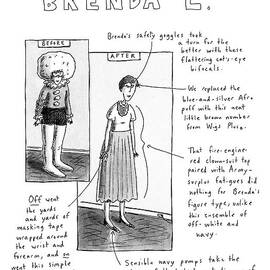 BRENDA E.
BEFORE
AFTER
Brenda's safety goggles took
a turn for the
better with these
flattering cat's-eye
bifocals.
We replaced the
blue-and-silver Afro
puff with this neat
little brown number
from Wigs Plus.
That fire-engine-
red clown-suit top
paired with Army-
surplus fatigues did
nothing for Brenda's
figure type, unlike
this ensemble of
off-white and
navy.
Off went
the yards
and yards of
masking tape
wrapped around
the wrist and
forearm, and on
went this simple
Sensible navy pumps take the